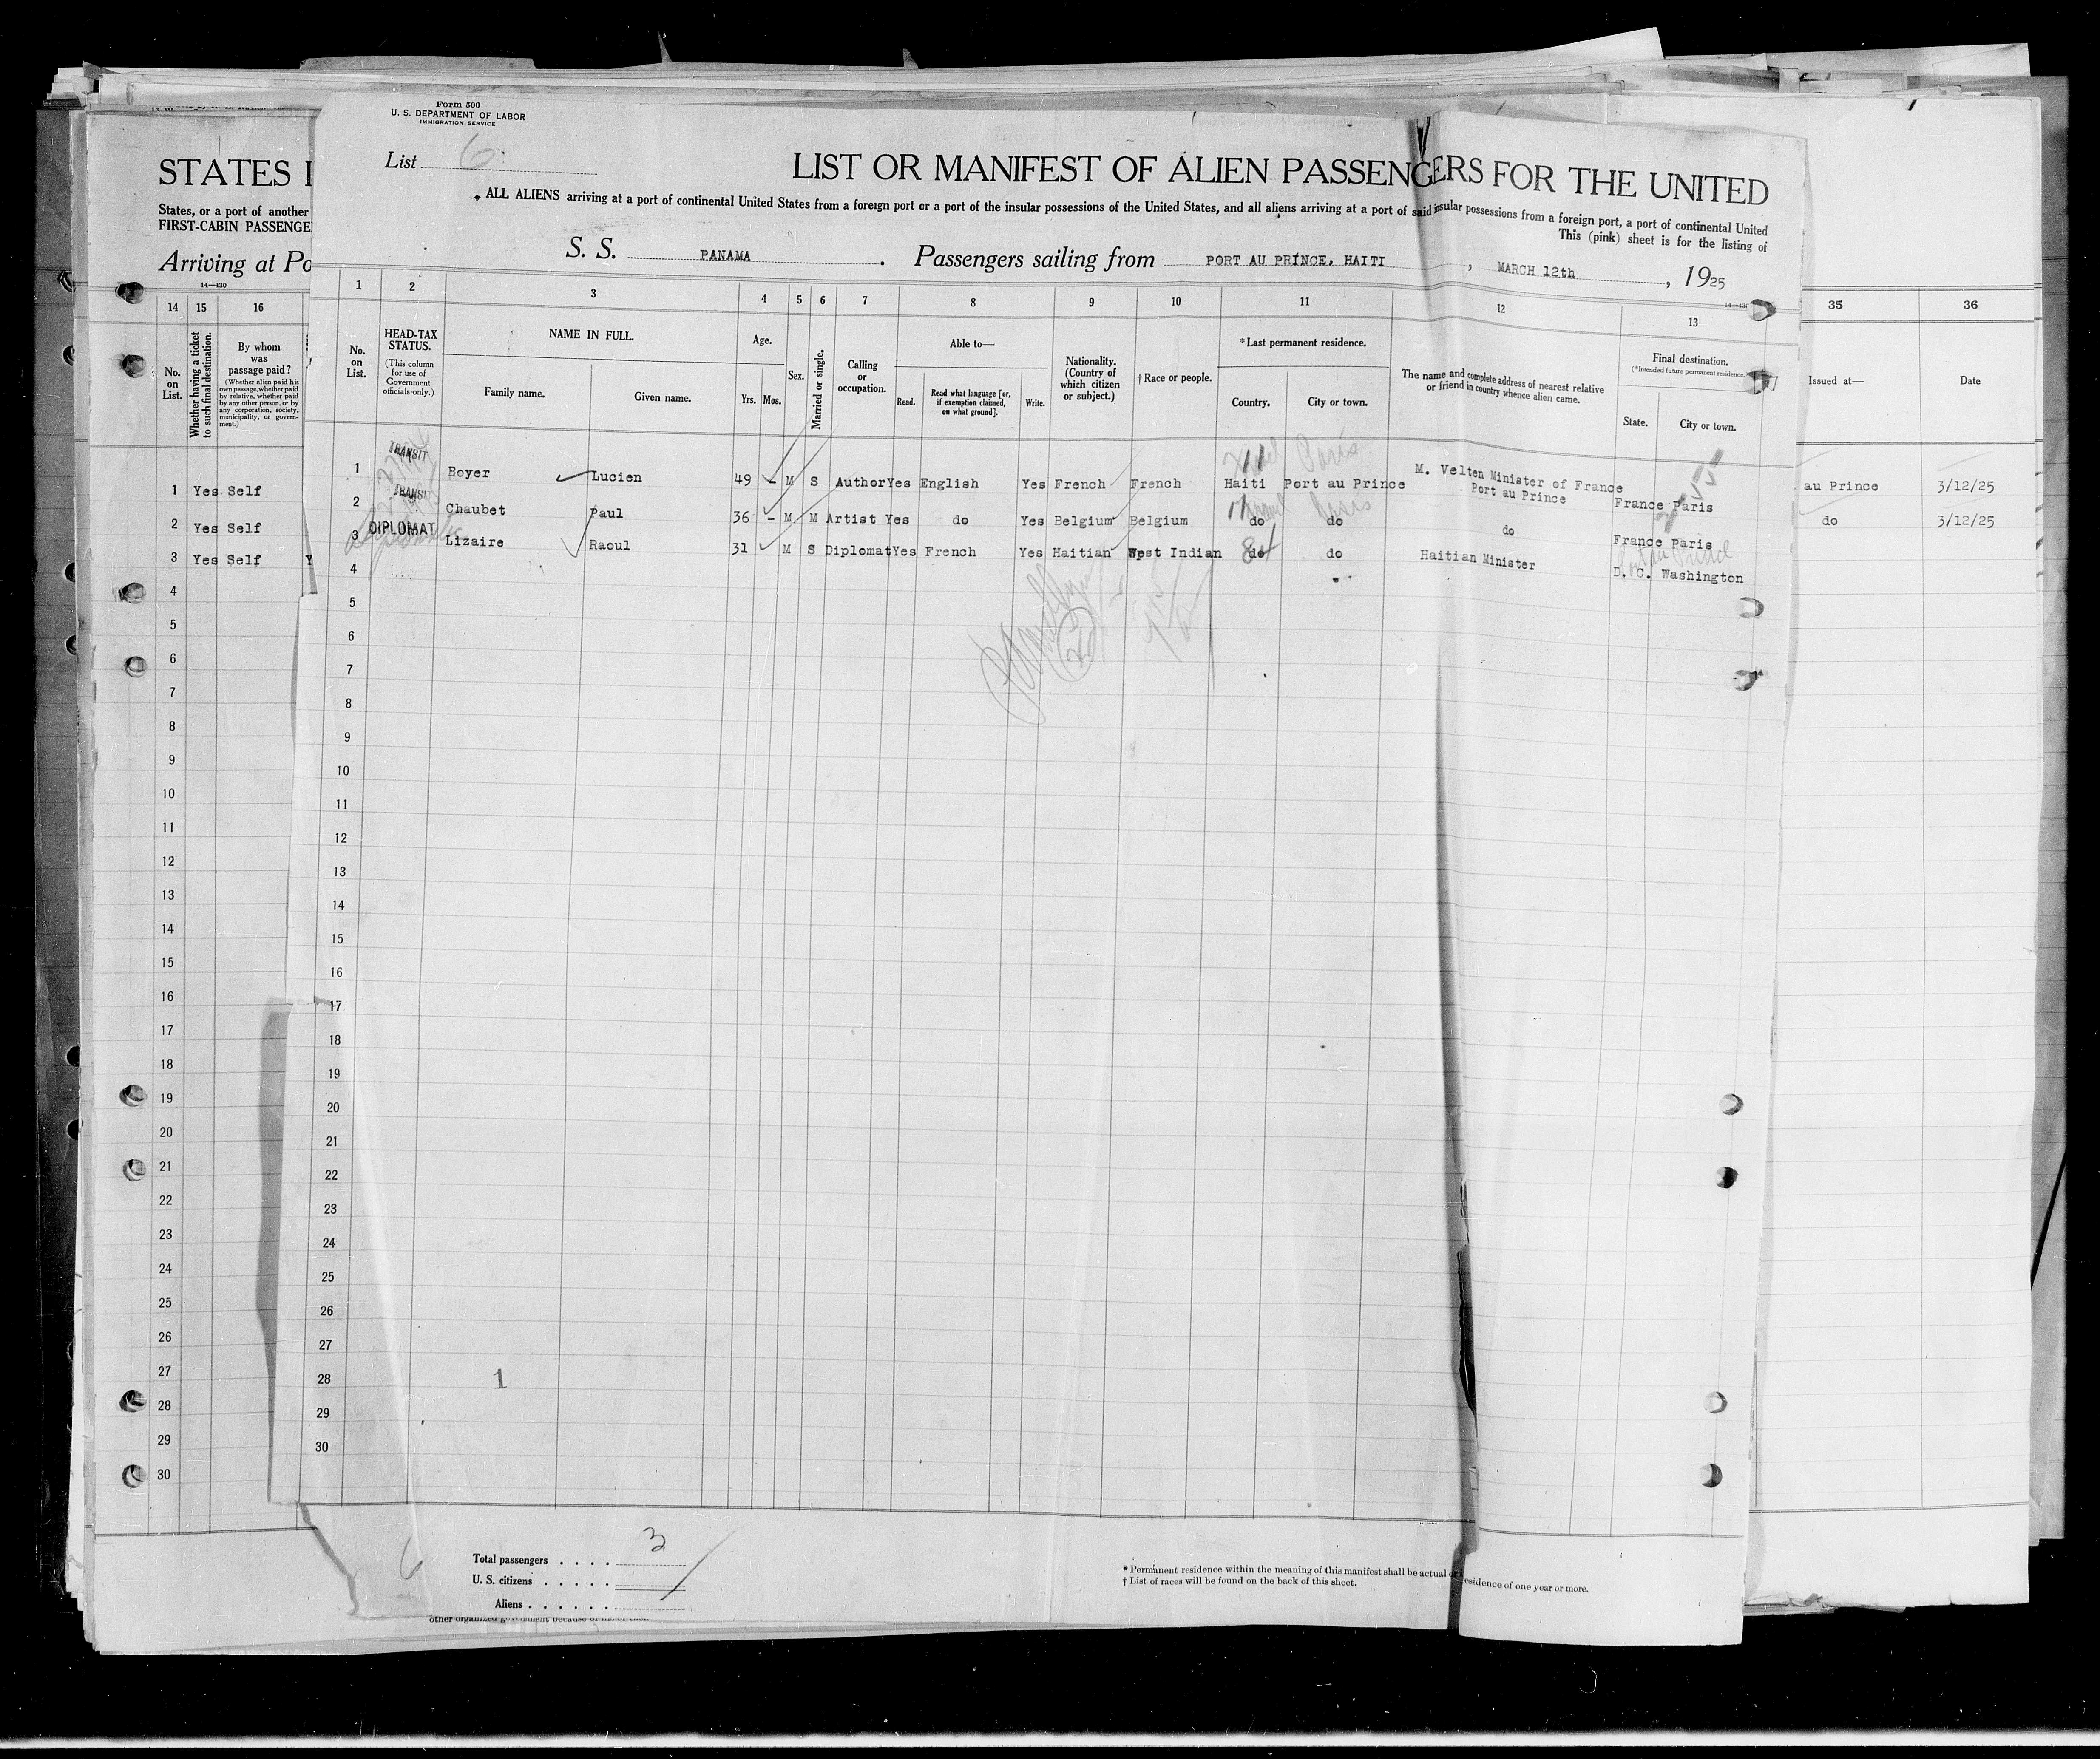 Form 500
U. S. DEPARTMENT OF LABOR
IMMIGRATION SERVICE
List 6
LIST OR MANIFEST OF ALIEN PASSENGERS FOR THE UNITED
ALL ALIENS arriving at a port of continental United States from a foreign port or a port of the insular possessions of the United States, and all aliens arriving at a port of said insular possessions from a foreign port, a port of continental United
This (pink) sheet is for the listing of
S. S. PANAMA. Passengers sailing from PORT AU PRINCE, HAITI, MARCH 12th, 1925
14—430
1 2 3 4 5 6 7 8 9 10 11 12 13
No. on List.
HEAD-TAX STATUS.
(This column for use of Government officials only.)
NAME IN FULL.
Family name.
Given name.
Age.
Yrs. Mos.
Sex.
Married or single.
Calling or occupation.
Able to—
Read.
Read what language [or, if exemption claimed, on what ground].
Write.
Nationality. (Country of which citizen or subject.)
†Race or people.
*Last permanent residence.
Country.
City or town.
The name and complete address of nearest relative or friend in country whence alien came.
Final destination.
(*Intended future permanent residence.)
State.
City or town.
1 TRANSIT Boyer Lucien 49 - M S Author Yes English Yes French French Haiti Port au Prince M. Velten Minister of France Port au Prince France Paris
2 TRANSIT Chaubet Paul 36 - M M Artist Yes do Yes Belgium Belgium do do do France Paris
3 DIPLOMAT Lizaire Raoul 31 M S Diplomat Yes French Yes Haitian West Indian do do Haitian Minister D. C. Washington
Paris
4
5
6
7
8
9
10
11
12
13
14
15
16
17
18
19
20
21
22
23
24
25
26
27
28 1
29
30
Total passengers . . . . 3
U. S. citizens . . . . .
Aliens . . . . . .
* Permanent residence within the meaning of this manifest shall be actual or residence of one year or more.
† List of races will be found on the back of this sheet.
STATES I
States, or a port of another
FIRST-CABIN PASSENGE
Arriving at Po
14—430
14 15 16
No. on List.
Whether having a ticket to such final destination.
By whom was passage paid?
(Whether alien paid his own passage, whether paid by relative, whether paid by any other person, or by any corporation, society, municipality, or government.)
1 Yes Self
2 Yes Self
3 Yes Self Y
4
5
6
7
8
9
10
11
12
13
14
15
16
17
18
19
20
21
22
23
24
25
26
27
28
29
30
35 36
Issued at— Date
au Prince 3/12/25
do 3/12/25